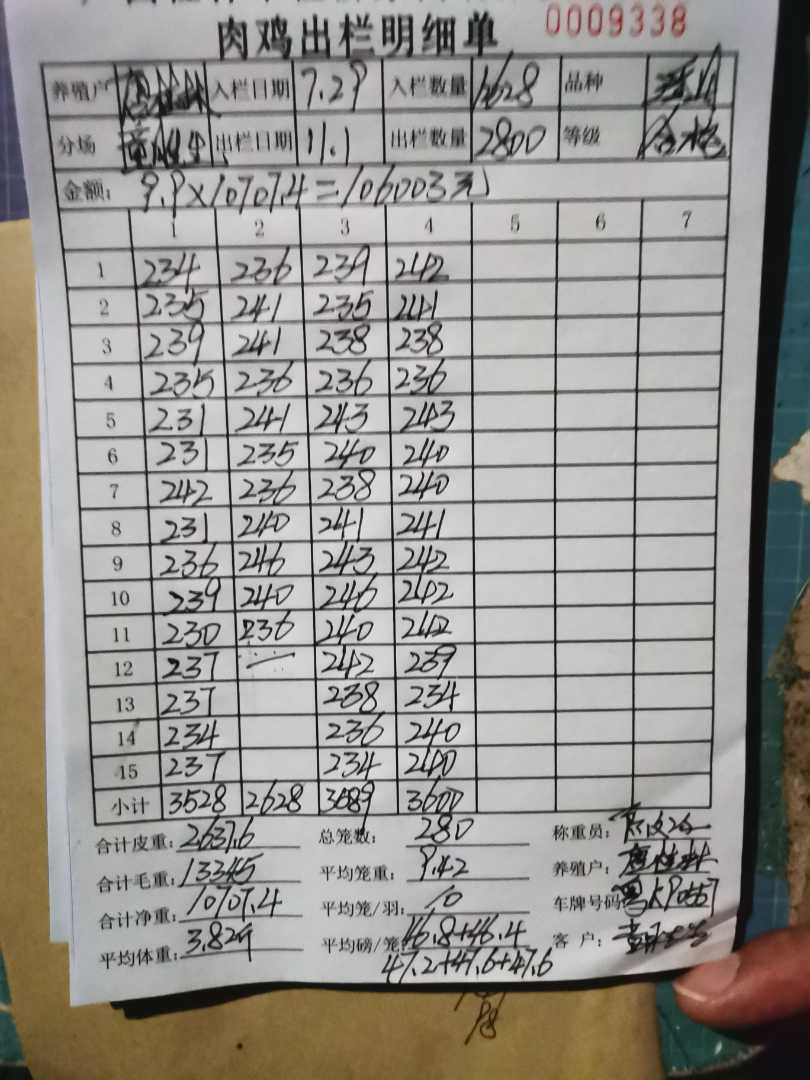 肉鸡出栏明细单 0009338
养殖户 入栏日期 7.29 入栏数量 品种
分场 出栏日期 11.1 出栏数量 2800 等级 合格
金额: 9.9×10707.4=106003元
1 2 3 4 5 6 7
1 234 236 239 242
2 235 241 235 241
3 239 241 238 238
4 235 236 236 236
5 231 241 243 243
6 231 235 240 240
7 242 236 238 240
8 231 240 241 241
9 236 246 243 242
10 239 240 246 242
11 230 236 240 242
12 237 — 242 239
13 237 238 234
14 234 236 240
15 237 234 240
小计 3528 2628 3589 3600
合计皮重: 2637.6 总笼数: 280 称重员:
合计毛重: 13345 平均笼重: 9.42 养殖户:
合计净重: 10707.4 平均笼/羽: 10 车牌号码:
平均体重: 3.82斤 平均磅/笼: 46.8+46.4 客户:
47.2+47.6+47.6